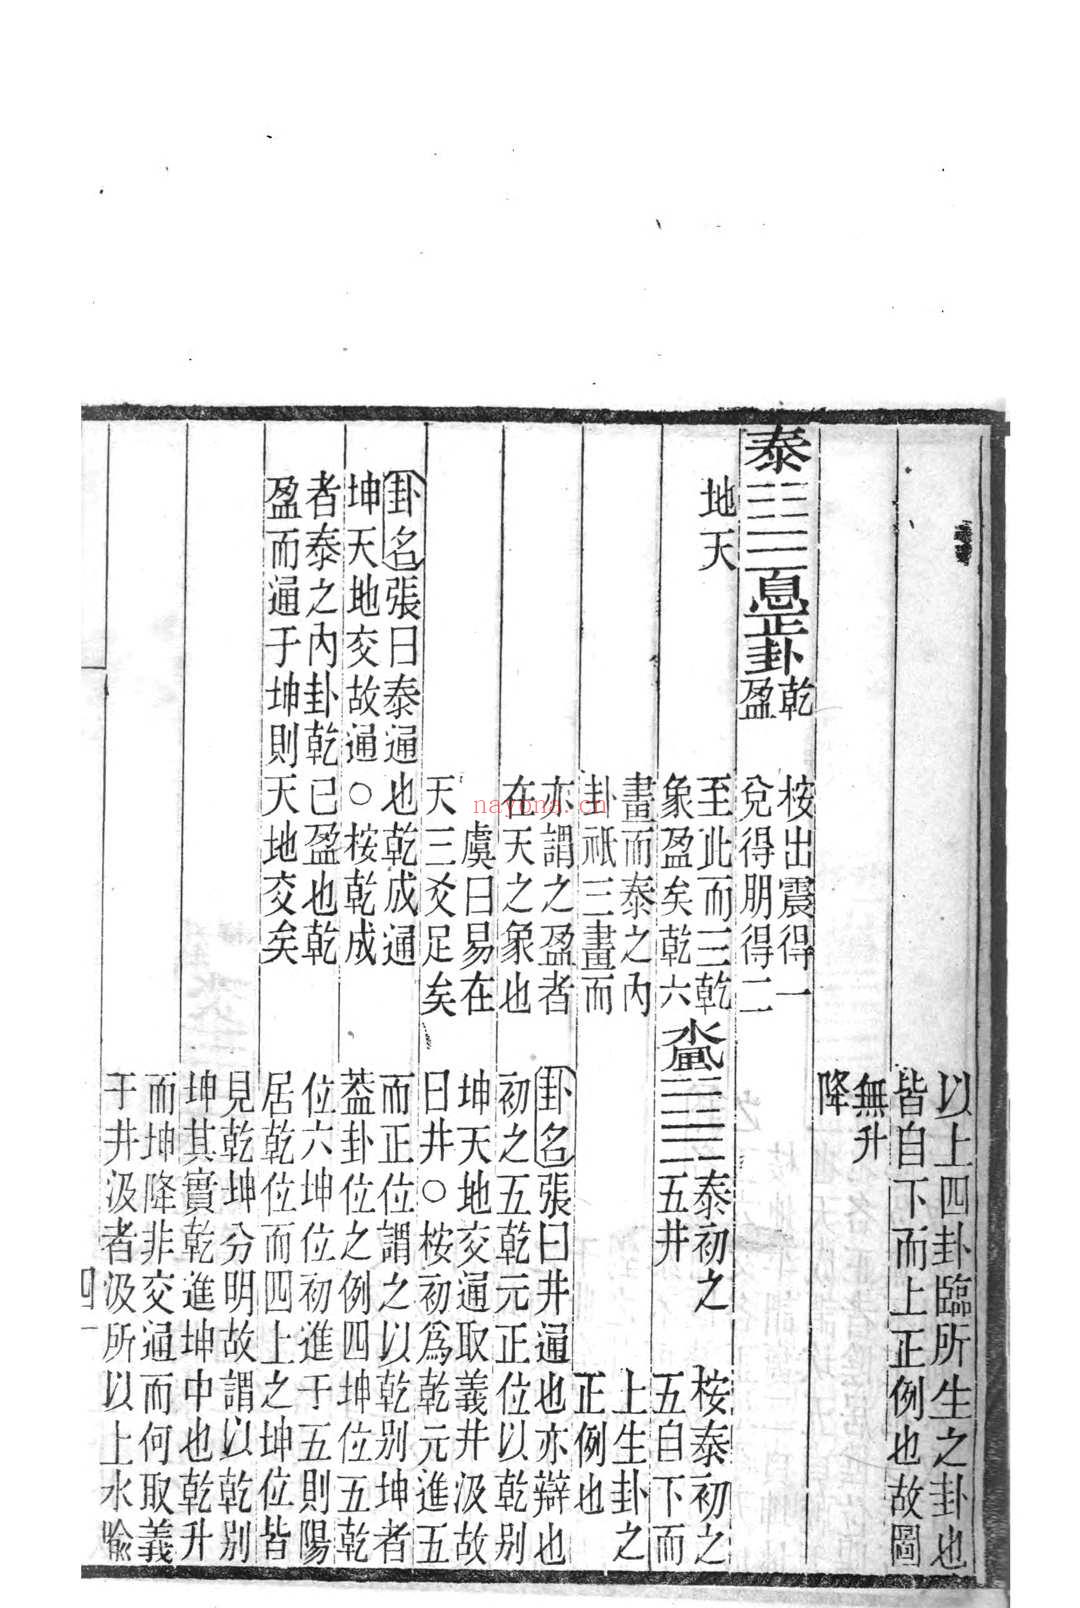 以上四卦臨所生之卦也
皆自下而上正例也故圖
無升
降
泰䷊息正卦乾盈
地天
桉出震得一
兌得朋得二
至此而三乾
象盈矣乾六
畫而泰之內
卦祇三畫而
亦謂之盈者
在天之象也
虞曰易在
天三爻足矣
卦名張曰泰通也乾成通
坤天地交故通○桉乾成
者泰之內卦乾已盈也乾
盈而通于坤則天地交矣
水風䷯泰初之
五井
桉泰初之
五自下而
上生卦之
正例也
卦名張曰井通也亦辯也
初之五乾元正位以乾別
坤天地交通取義井汲故
曰井○桉初爲乾元進五
而正位謂之以乾別坤者
葢卦位之例四坤位五乾
位六坤位初進于五則陽
居乾位而四上之坤位皆
見乾坤分明故謂以乾別
坤其實乾進坤中也乾升
而坤降非交通而何取義
于井汲者汲所以上水喻
四
nayona.cn